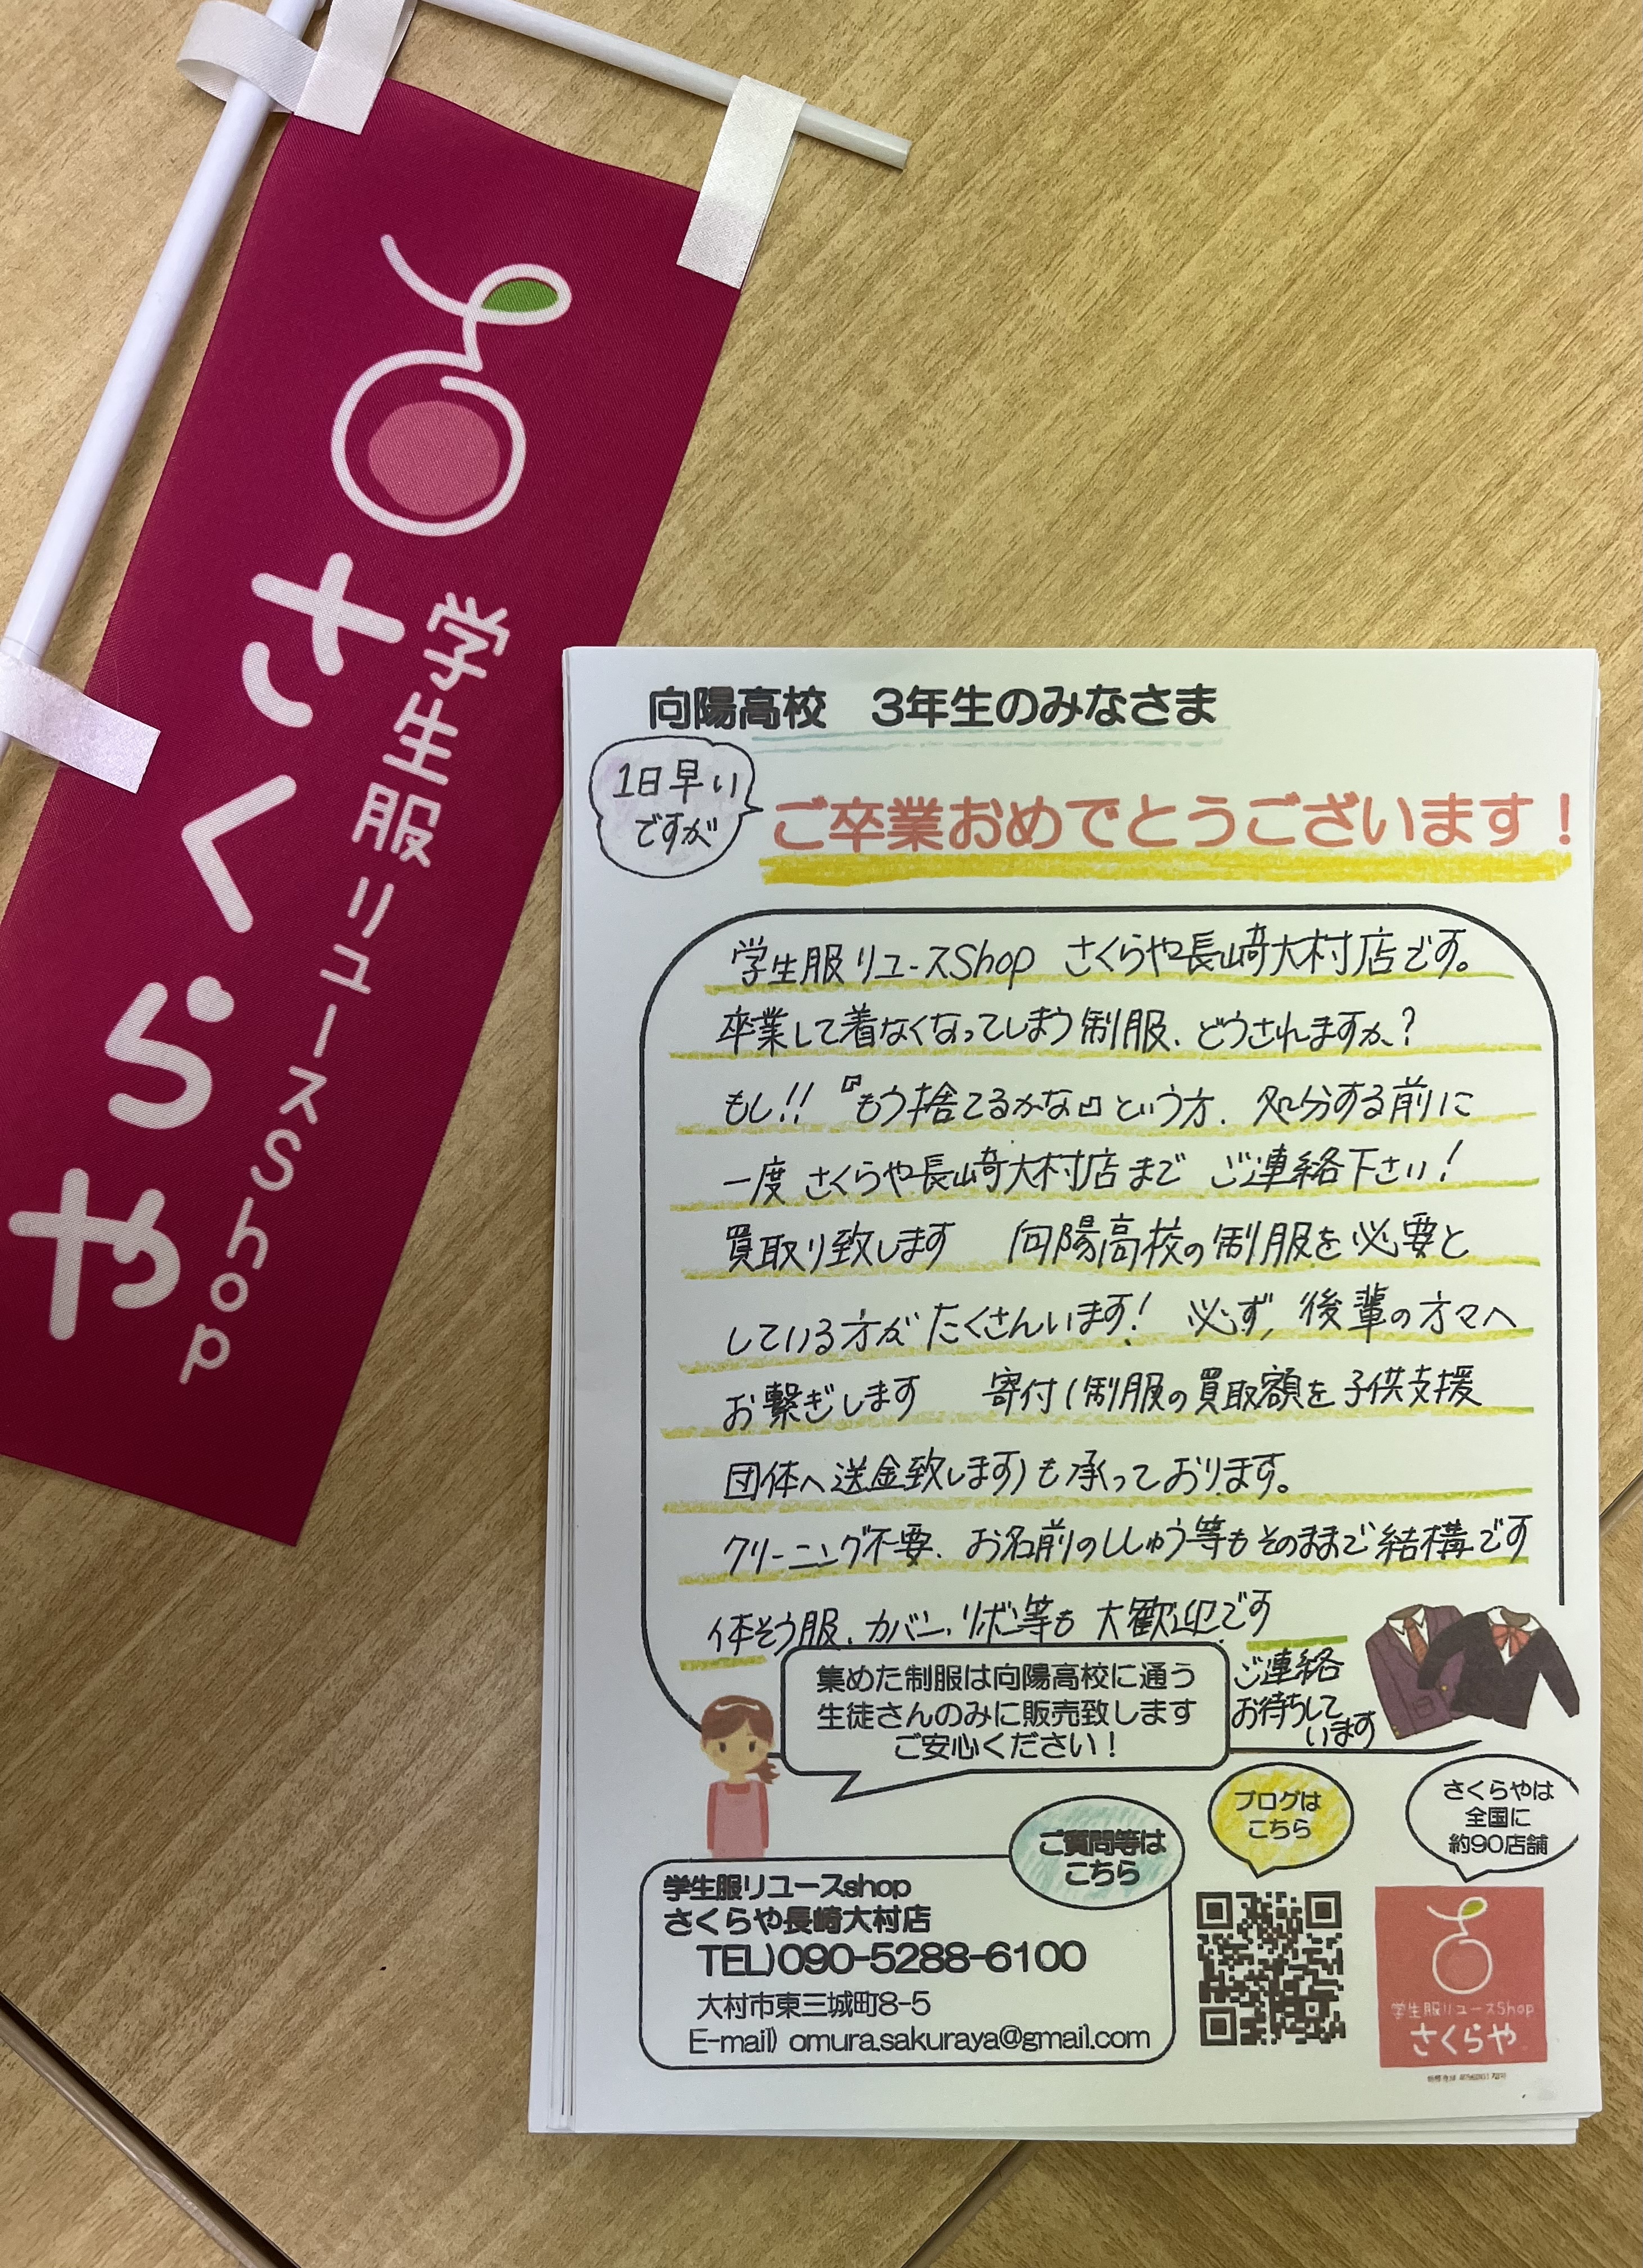 さくらや
学生服リユースShop
向陽高校　3年生のみなさま
1日早い
ですが
ご卒業おめでとうございます！
学生服リユースShop さくらや長崎大村店です。
卒業して着なくなってしまう制服、どうされますか？
もし!!『もう捨てるかな』という方、処分する前に
一度 さくらや長崎大村店まで ご連絡下さい！
買取り致します 向陽高校の制服を必要と
している方がたくさんいます！ 必ず、後輩の方々へ
お繋ぎします 寄付(制服の買取額を子供支援
団体へ送金致します)も承っております。
クリーニング不要、お名前のししゅう等もそのままで結構です
体そう服、カバン、リボン等も 大歓迎です
ご連絡
お待ちして
います
集めた制服は向陽高校に通う
生徒さんのみに販売致します
ご安心ください！
ご質問等は
こちら
ブログは
こちら
さくらやは
全国に
約90店舗
学生服リユースshop
さくらや長崎大村店
TEL)090-5288-6100
大村市東三城町8-5
E-mail) omura.sakuraya@gmail.com
学生服リユースShop
さくらや